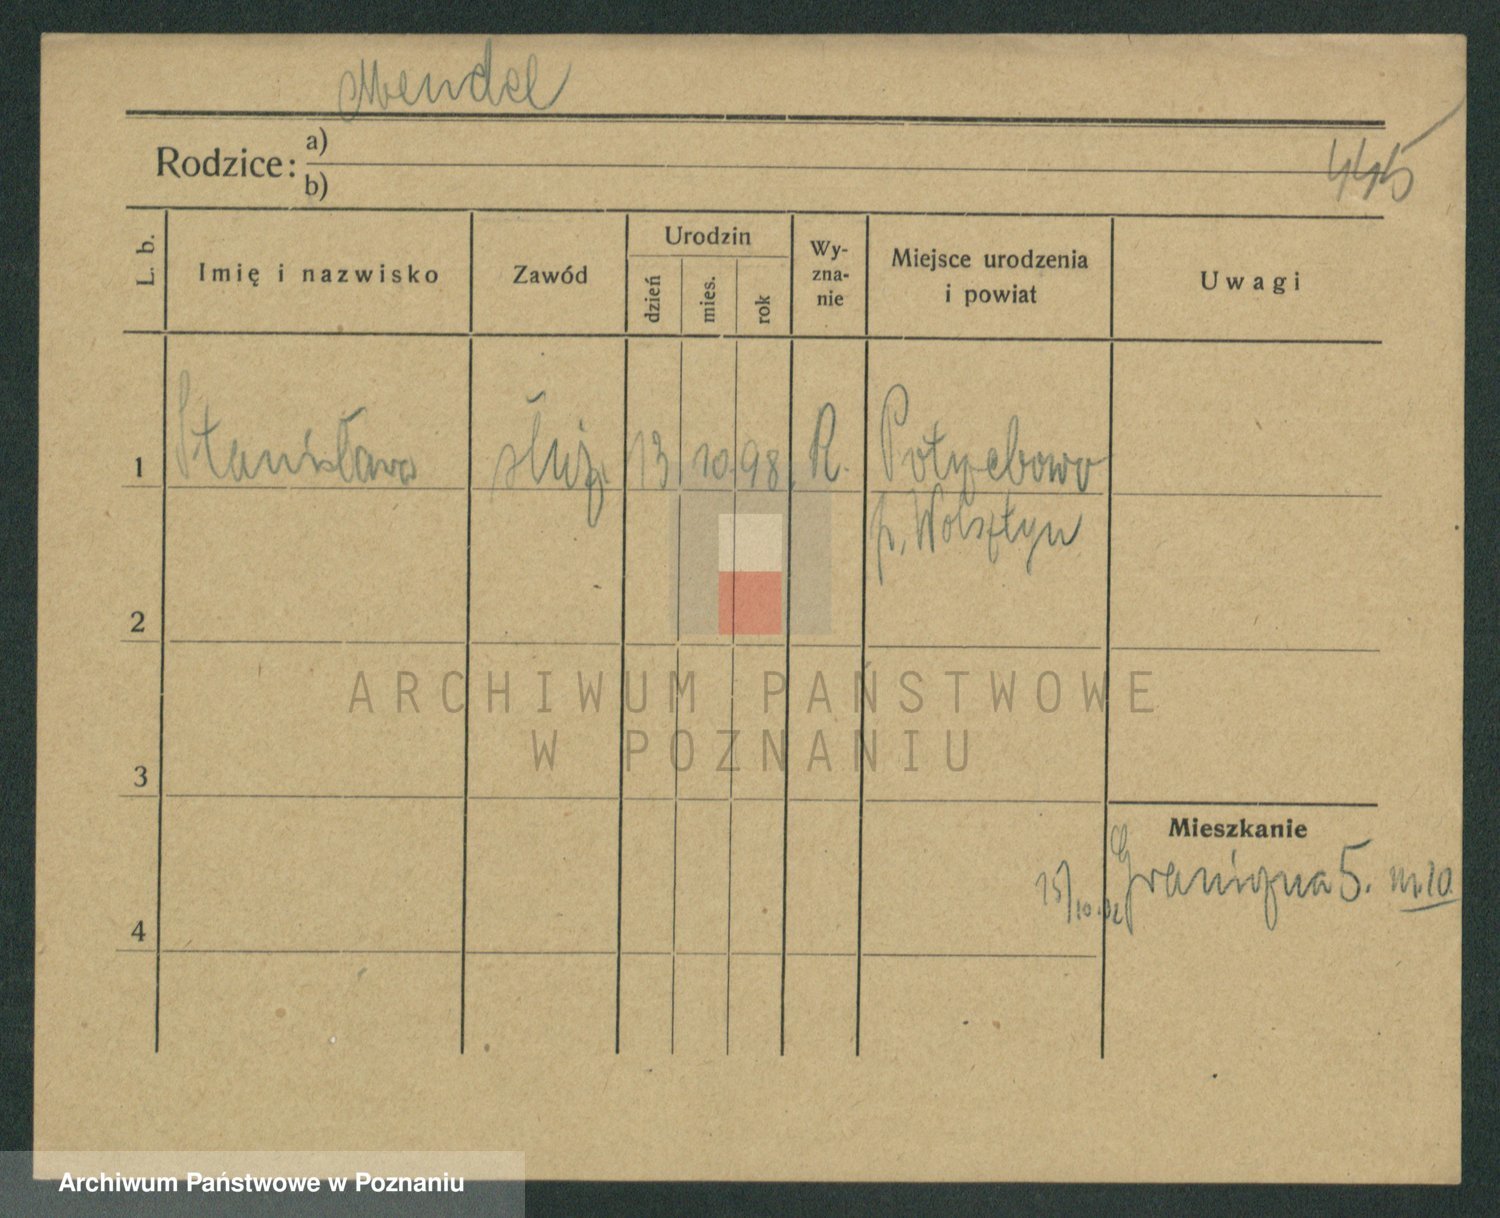 Mendel
Rodzice: a)
b)
445
L. b.
Imię i nazwisko
Zawód
Urodzin
dzień
mies.
rok
Wy-
zna-
nie
Miejsce urodzenia
i powiat
Uwagi
1 Stanisława służ. 13 10. 98. R.
p. Wolsztyn
2
3
4
Mieszkanie
15/10.32 Graniczna 5. m. 10.
ARCHIWUM PAŃSTWOWE
W POZNANIU
Archiwum Państwowe w Poznaniu